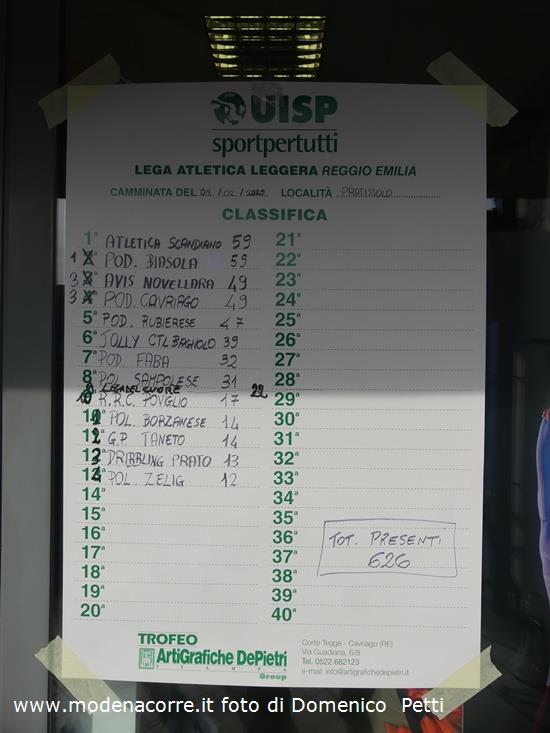 UISP
sportpertutti
LEGA ATLETICA LEGGERA REGGIO EMILIA
CAMMINATA DEL 09 / 02 / 2020 LOCALITÀ PRATISSOLO
CLASSIFICA
1ª ATLETICA SCANDIANO 59
1 POD. BIASOLA 59
3 AVIS NOVELLARA 49
3 POD. CAVRIAGO 49
5ª POD. RUBIERESE 47
6ª JOLLY CTL BAGNOLO 39
7ª POD. FABA 32
8ª POL. SAMPOLESE 31
9 LEGA DEL CUORE 22
10 R.R.C. POVIGLIO 17
11 POL. BORZANESE 14
12 G.P. TANETO 14
13 DRIBBLING PRATO 13
14 POL. ZELIG 12
14ª
15ª
16ª
17ª
18ª
19ª
20ª
21ª
22ª
23ª
24ª
25ª
26ª
27ª
28ª
29ª
30ª
31ª
32ª
33ª
34ª
35ª
36ª
37ª
38ª
39ª
40ª
TOT. PRESENTI
626
TROFEO
ArtiGrafiche DePietri
STAMPA
Group
Corte Tegge - Cavriago (RE)
Via Guadiana, 6/8
Tel. 0522.682123
e-mail: info@artigrafichedepietri.it
www.modenacorre.it foto di Domenico Petti